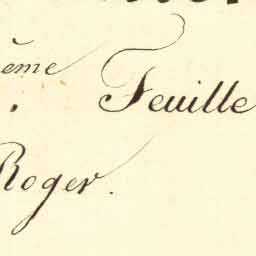 ème
. Feuille
Roger.